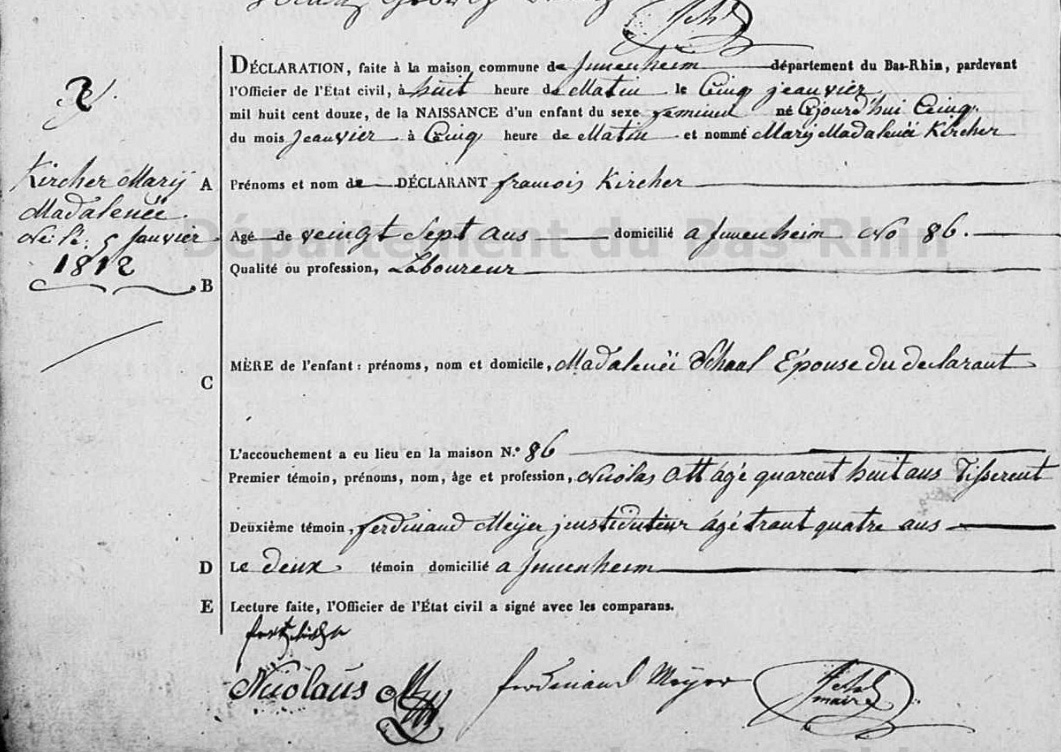 2
Kircher Marÿ
Madalenëe
Né le 5 Janvier
1812
DÉCLARATION, faite à la maison commune de Jnnenheim département du Bas-Rhin, pardevant
l'Officier de l'État civil, à huit heure de Matin le Cinq jeanvier
mil huit cent douze, de la NAISSANCE d'un enfant du sexe feminin né Cejourd'hui Cinq
du mois Jeanvier à Cinq heure de Matin et nommé Marÿ Madalenëe Kircher
A Prénoms et nom de DÉCLARANT francois Kircher
Agé de veingt Sept ans domicilié a Jnnenheim No 86.
Qualité ou profession, Laboureur
B
MÈRE de l'enfant : prénoms, nom et domicile, Madalenëe Schaal Épouse du declarant
C
L'accouchement a eu lieu en la maison N.° 86
Premier témoin, prénoms, nom, âge et profession, Nicolas Ott âgé quarent huit ans Tisserent
Deuxième témoin, ferdinand Meÿer jnstiduteur âgé trant quatre ans
D Le deux témoin domicilié a Jnnenheim
E Lecture faite, l'Officier de l'État civil a signé avec les comparans.
Nicolaus Ott ferdinand Meÿer maire
Département du Bas-Rhin